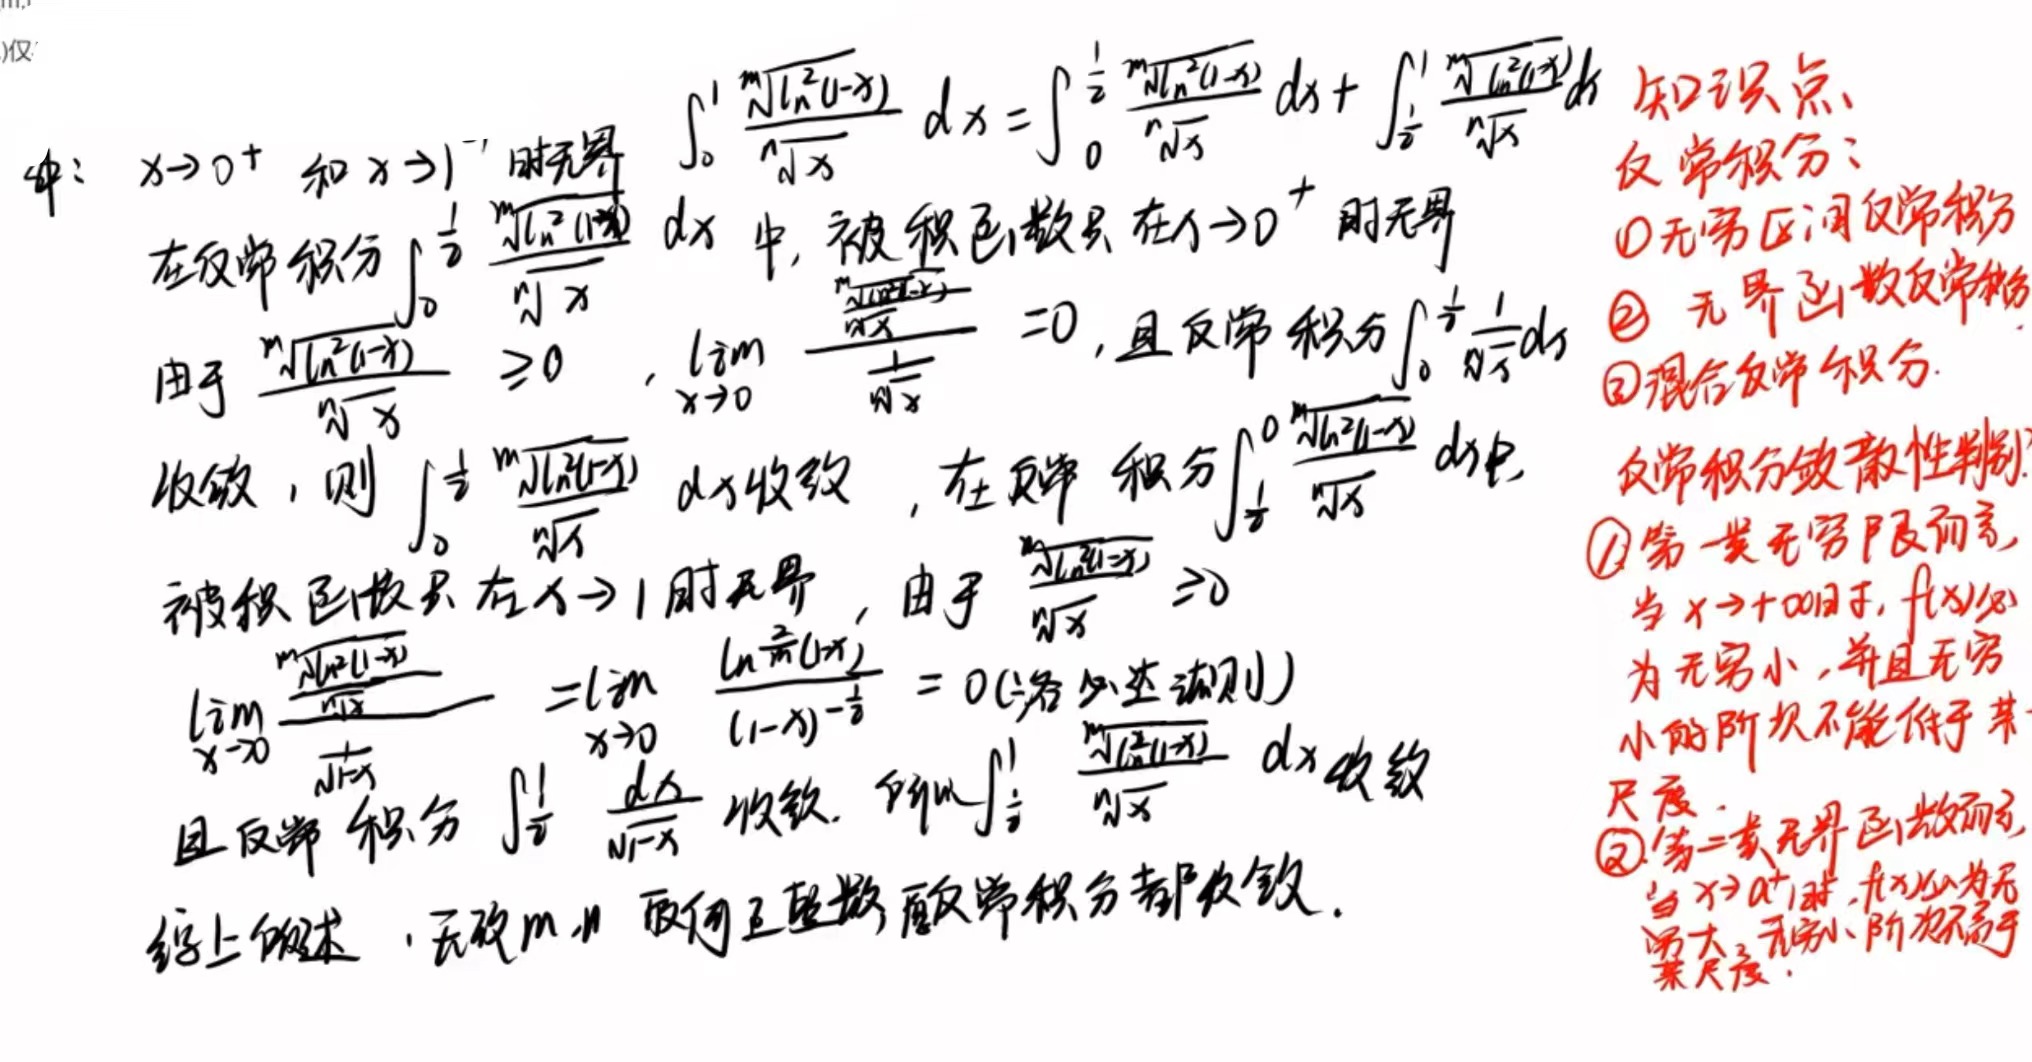 )仅
x→0⁺ 和 x→1⁻ 时无界 ∫₀¹ ᵐ√(ln²(1-x)) / ⁿ√x dx = ∫₀^(1/2) ᵐ√(ln²(1-x)) / ⁿ√x dx + ∫_(1/2)^1 ᵐ√(ln²(1-x)) / ⁿ√x dx
在反常积分 ∫₀^(1/2) ᵐ√(ln²(1-x)) / ⁿ√x dx 中, 被积函数只在x→0⁺ 时无界
由于 ᵐ√(ln²(1-x)) / ⁿ√x ≥0 , lim x→0 (ᵐ√(ln²(1-x)) / ⁿ√x) / (1/ⁿ√x) =0, 且反常积分 ∫₀^(1/2) 1/ⁿ√x dx
收敛, 则 ∫₀^(1/2) ᵐ√(ln²(1-x)) / ⁿ√x dx收敛 , 在反常积分 ∫_(1/2)^0 ᵐ√(ln²(1-x)) / ⁿ√x dx中,
被积函数只在x→1时无界, 由于 ᵐ√(ln²(1-x)) / ⁿ√x ≥0
lim x→0 (ᵐ√(ln²(1-x)) / ⁿ√x) / (1/√(1-x)) = lim x→0 ln^(2/m)(1-x) / (1-x)^(-1/2) = 0(洛必达法则)
且反常积分 ∫_(1/2)^1 dx/√(1-x) 收敛. 所以 ∫_(1/2)^1 ᵐ√(ln²(1-x)) / ⁿ√x dx 收敛
综上所述 , 无论m,n 取何正整数, 反常积分都收敛.
知识点、
反常积分:
①无穷区间反常积分
② 无界函数反常积分.
③混合反常积分.
反常积分敛散性判别:
①第一类无穷限而言,
当 x→+∞时, f(x)必
为无穷小, 并且无穷
小的阶次不能低于某一
尺度.
②第二类无界函数而言,
当x→a⁺时, f(x)必为无
穷大, 无穷小阶次不高于
某尺度.